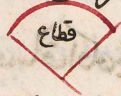 قطاع